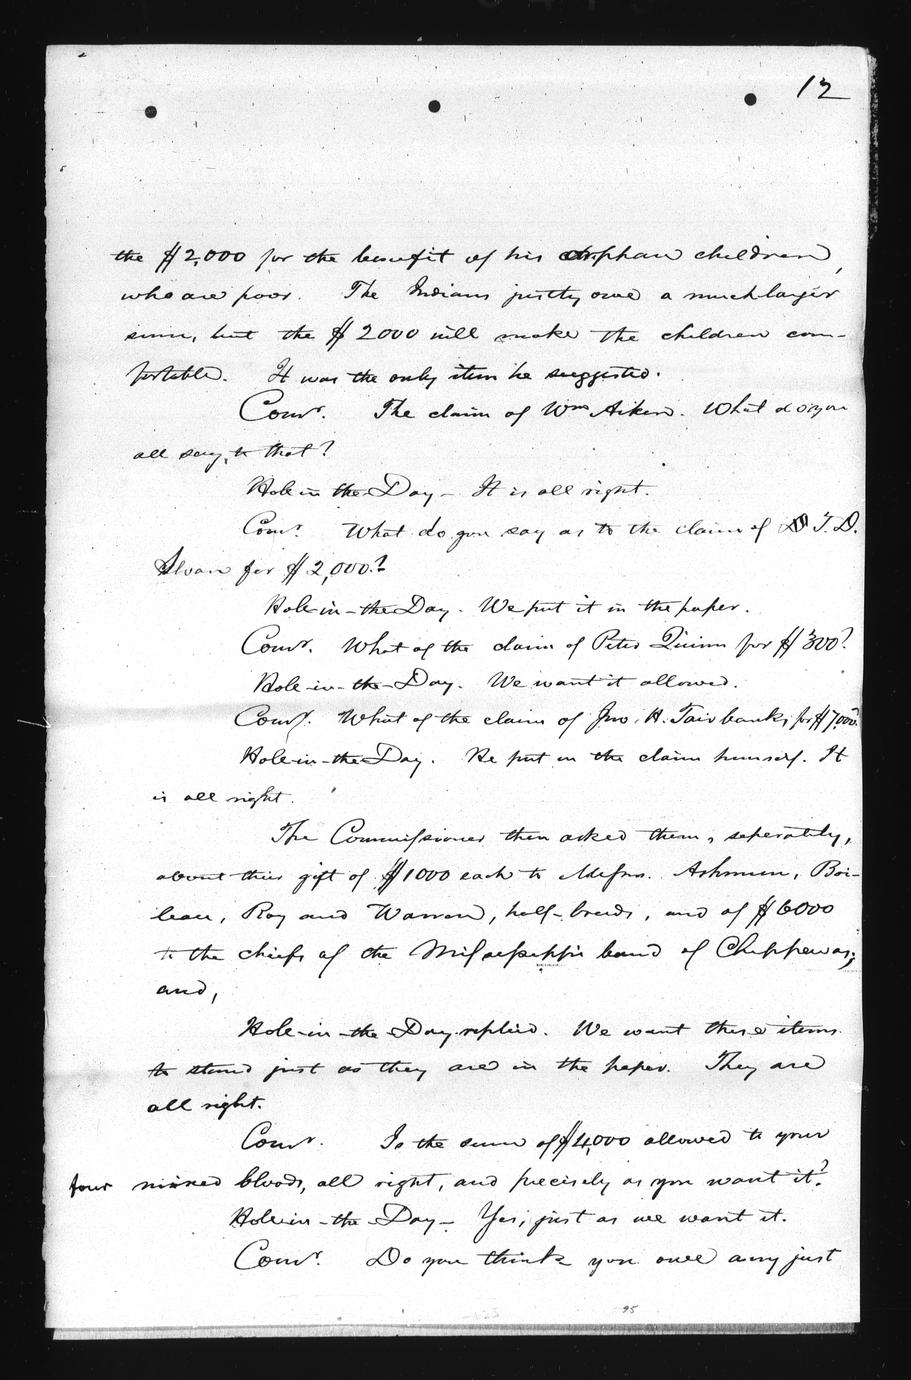 12
the $2,000 for the benefit of his orphan children,
who are poor. The Indians justly owe a much larger
sum, but the $2000 will make the children com-
fortable. It was the only item he suggested.
Comr. The claim of Wm Aiken. What do you
all say, to that?
Hole in the Day - It is all right.
Comr. What do you say as to the claim of D. T. D.
Sloan for $2,000?
Hole-in-the Day. We put it in the paper.
Comr. What of the claim of Peter Quinn for $300?
Hole-in-the-Day. We want it allowed.
Comr. What of the claim of Jno. H. Fairbanks for $7,000?
Hole-in-the Day. He put in the claim himself. It
is all right.
The Commissioner then asked them, seperately,
about their gift of $1000 each to Messrs. Ashmun, Boi-
leau, Roy and Warren, half-breeds, and of $6000
to the chiefs of the Mississippi band of Chippewas;
and,
Hole-in-the Day replied. We want these items
to stand just as they are in the paper. They are
all right.
Comr. Is the sum of $4,000 allowed to your
four mixed bloods, all right, and precisely as you want it?
Hole-in-the Day - Yes, just as we want it.
Comr. Do you think you owe any just
95